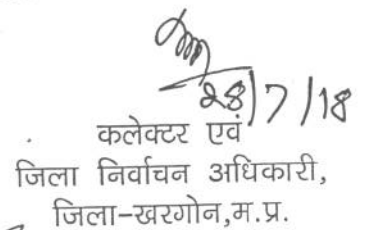 28/7/18
कलेक्टर एवं
जिला निर्वाचन अधिकारी,
जिला-खरगोन,म.प्र.